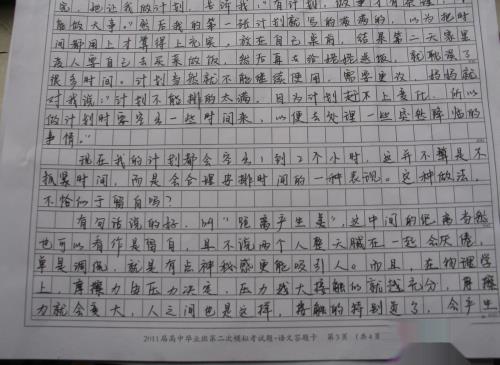 完，把让我做计划，告诉我，"有计划，做事才有条理，才
能做大事。"然后我的第一张计划就写的满满的，以为把时
间都用上才算得上充实，放在自己桌前，结果第二天家里
家人要自己去买菜做饭，然后再去给爸爸送饭，就耽误了
很多时间。计划当然就不能继续使用，需要更改，妈妈就
对我说："计划不能排的太满，因为计划赶不上变化，所以
做计划时要空出一些时间来，以便去处理一些突然降临的
事情。"
现在我的计划都会空出1到2个小时，这并不算是不
抓紧时间，而是会合理安排时间的一种表现。这种做法，
不恰似于留白吗？
有句话说的好，叫"距离产生美"，这中间的距离当然
也可以看作是留白，且不说两个人整天腻在一起会厌倦，
单是调侃，就是有点神秘感更能吸引人。而且，在物理学
上，摩擦力由压力决定，压力越大接触的就越充分，摩擦
力就会变大，人之间也是这样，接触的特别近了，会产生
2011届高中毕业班第二次模拟考试题·语文答题卡 第3页（共4页